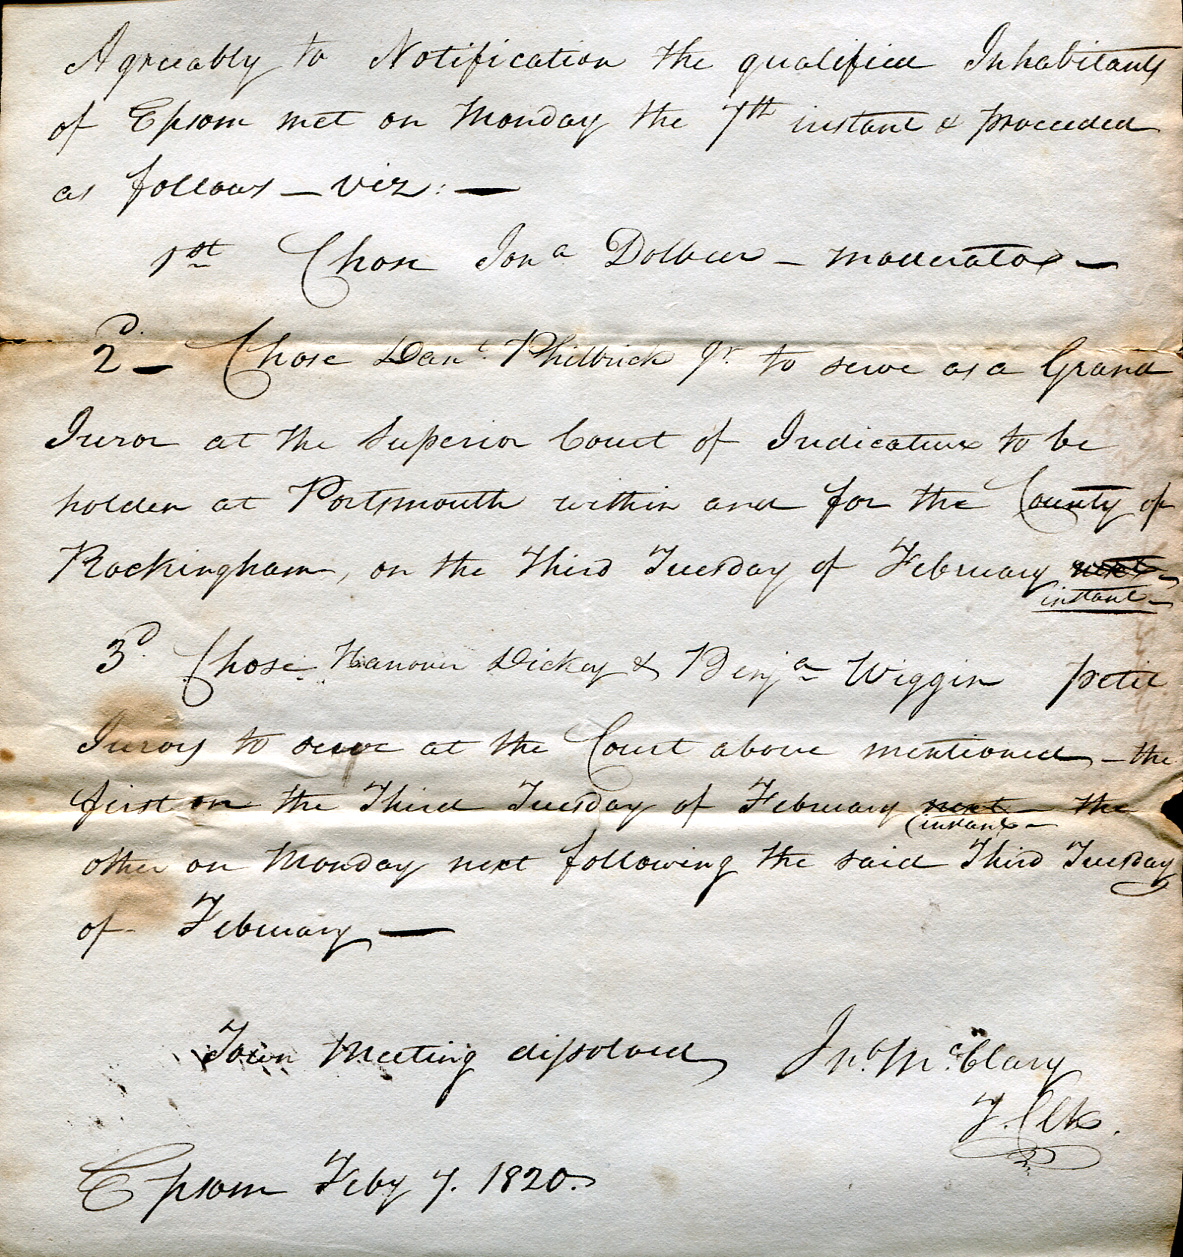 Agreeably to Notification the qualified Inhabitants
of Epsom met on Monday the 7th instant & proceeded
as follows — viz: —
1st Chose Jona Dolbeer — moderator —
2d — Chose Danl. Philbrick Jr. to serve as a Grand
Juror at the Superior Court of Judicature to be
holden at Portsmouth within and for the County of
Rockingham, on the Third Tuesday of February next
instant —
3d. Chose Hanover Dickey & Benja Wiggin petit
Jurors to serve at the Court above mentioned — the
first on the Third Tuesday of February next — the
instant —
other on Monday next following the said Third Tuesday
of February —
Town Meeting dissolved
Jno. McClary
T. Clk.
Epsom Feby 7. 1820.